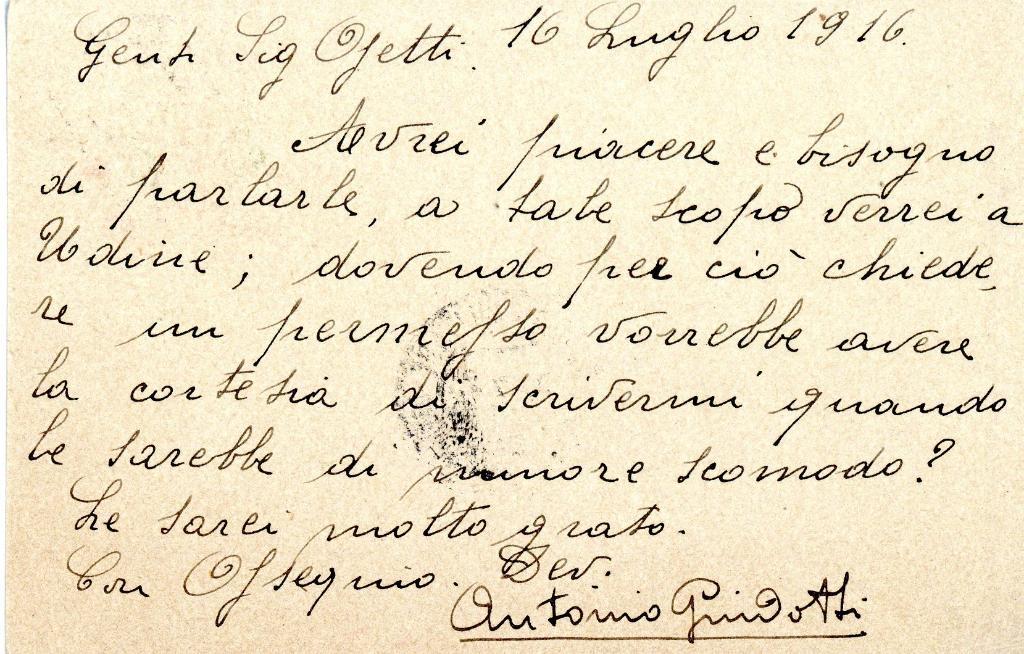 Gent. Sig Ojetti. 16 Luglio 1916.
Avrei piacere e bisogno
di parlarle, a tale scopo verrei a
Udine; dovendo per ciò chiede,
re un permesso vorrebbe avere
la cortesia di scrivermi quando
le sarebbe di minore scomodo?
Le sarei molto grato.
Con Ossequio. Dev.
Antonio Guidotti